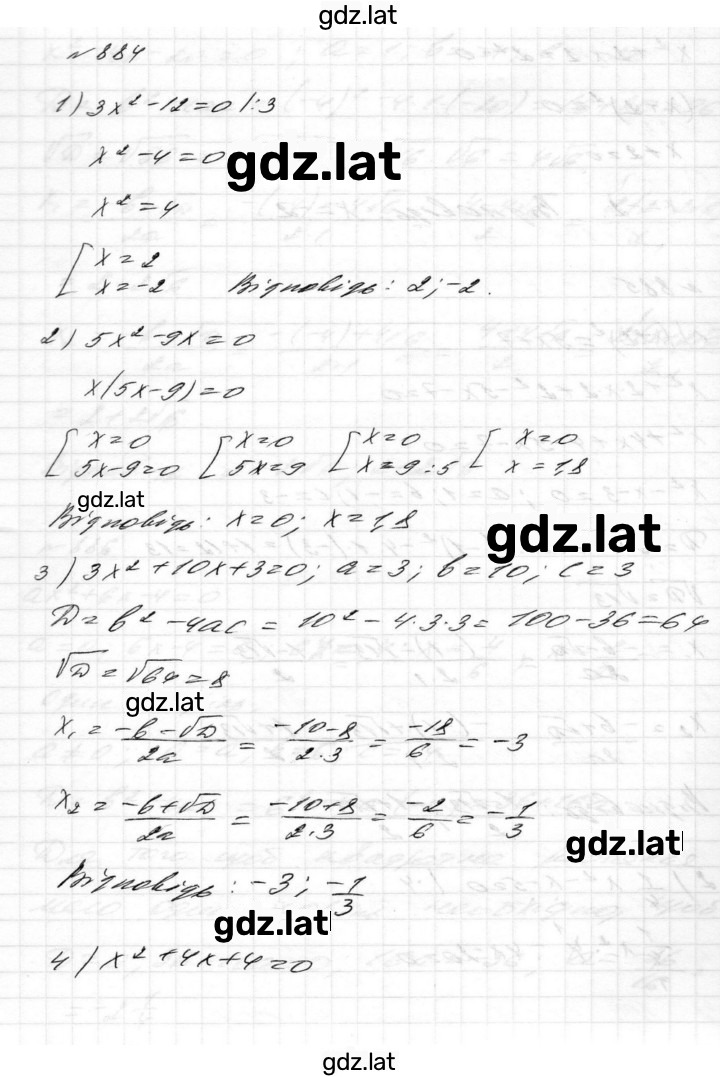 gdz.lat
№884
1) 3x² - 12 = 0 |:3
x² - 4 = 0
gdz.lat
x² = 4
[ x = 2
x = -2 Відповідь: 2; -2.
2) 5x² - 9x = 0
x(5x - 9) = 0
[ x = 0 [ x = 0 [ x = 0 [ x = 0
5x - 9 = 0 5x = 9 x = 9 : 5 x = 1,8
gdz.lat
Відповідь: x = 0; x = 1,8
gdz.lat
3) 3x² + 10x + 3 = 0; a = 3; b = 10; c = 3
D = b² - 4ac = 10² - 4·3·3 = 100 - 36 = 64
√D = √64 = 8
gdz.lat
x₁ = (-b - √D)/2a = (-10 - 8)/2·3 = -18/6 = -3
x₂ = (-b + √D)/2a = (-10 + 8)/2·3 = -2/6 = -1/3
gdz.lat
Відповідь: -3; -1/3
gdz.lat
4) x² + 4x + 4 = 0
gdz.lat